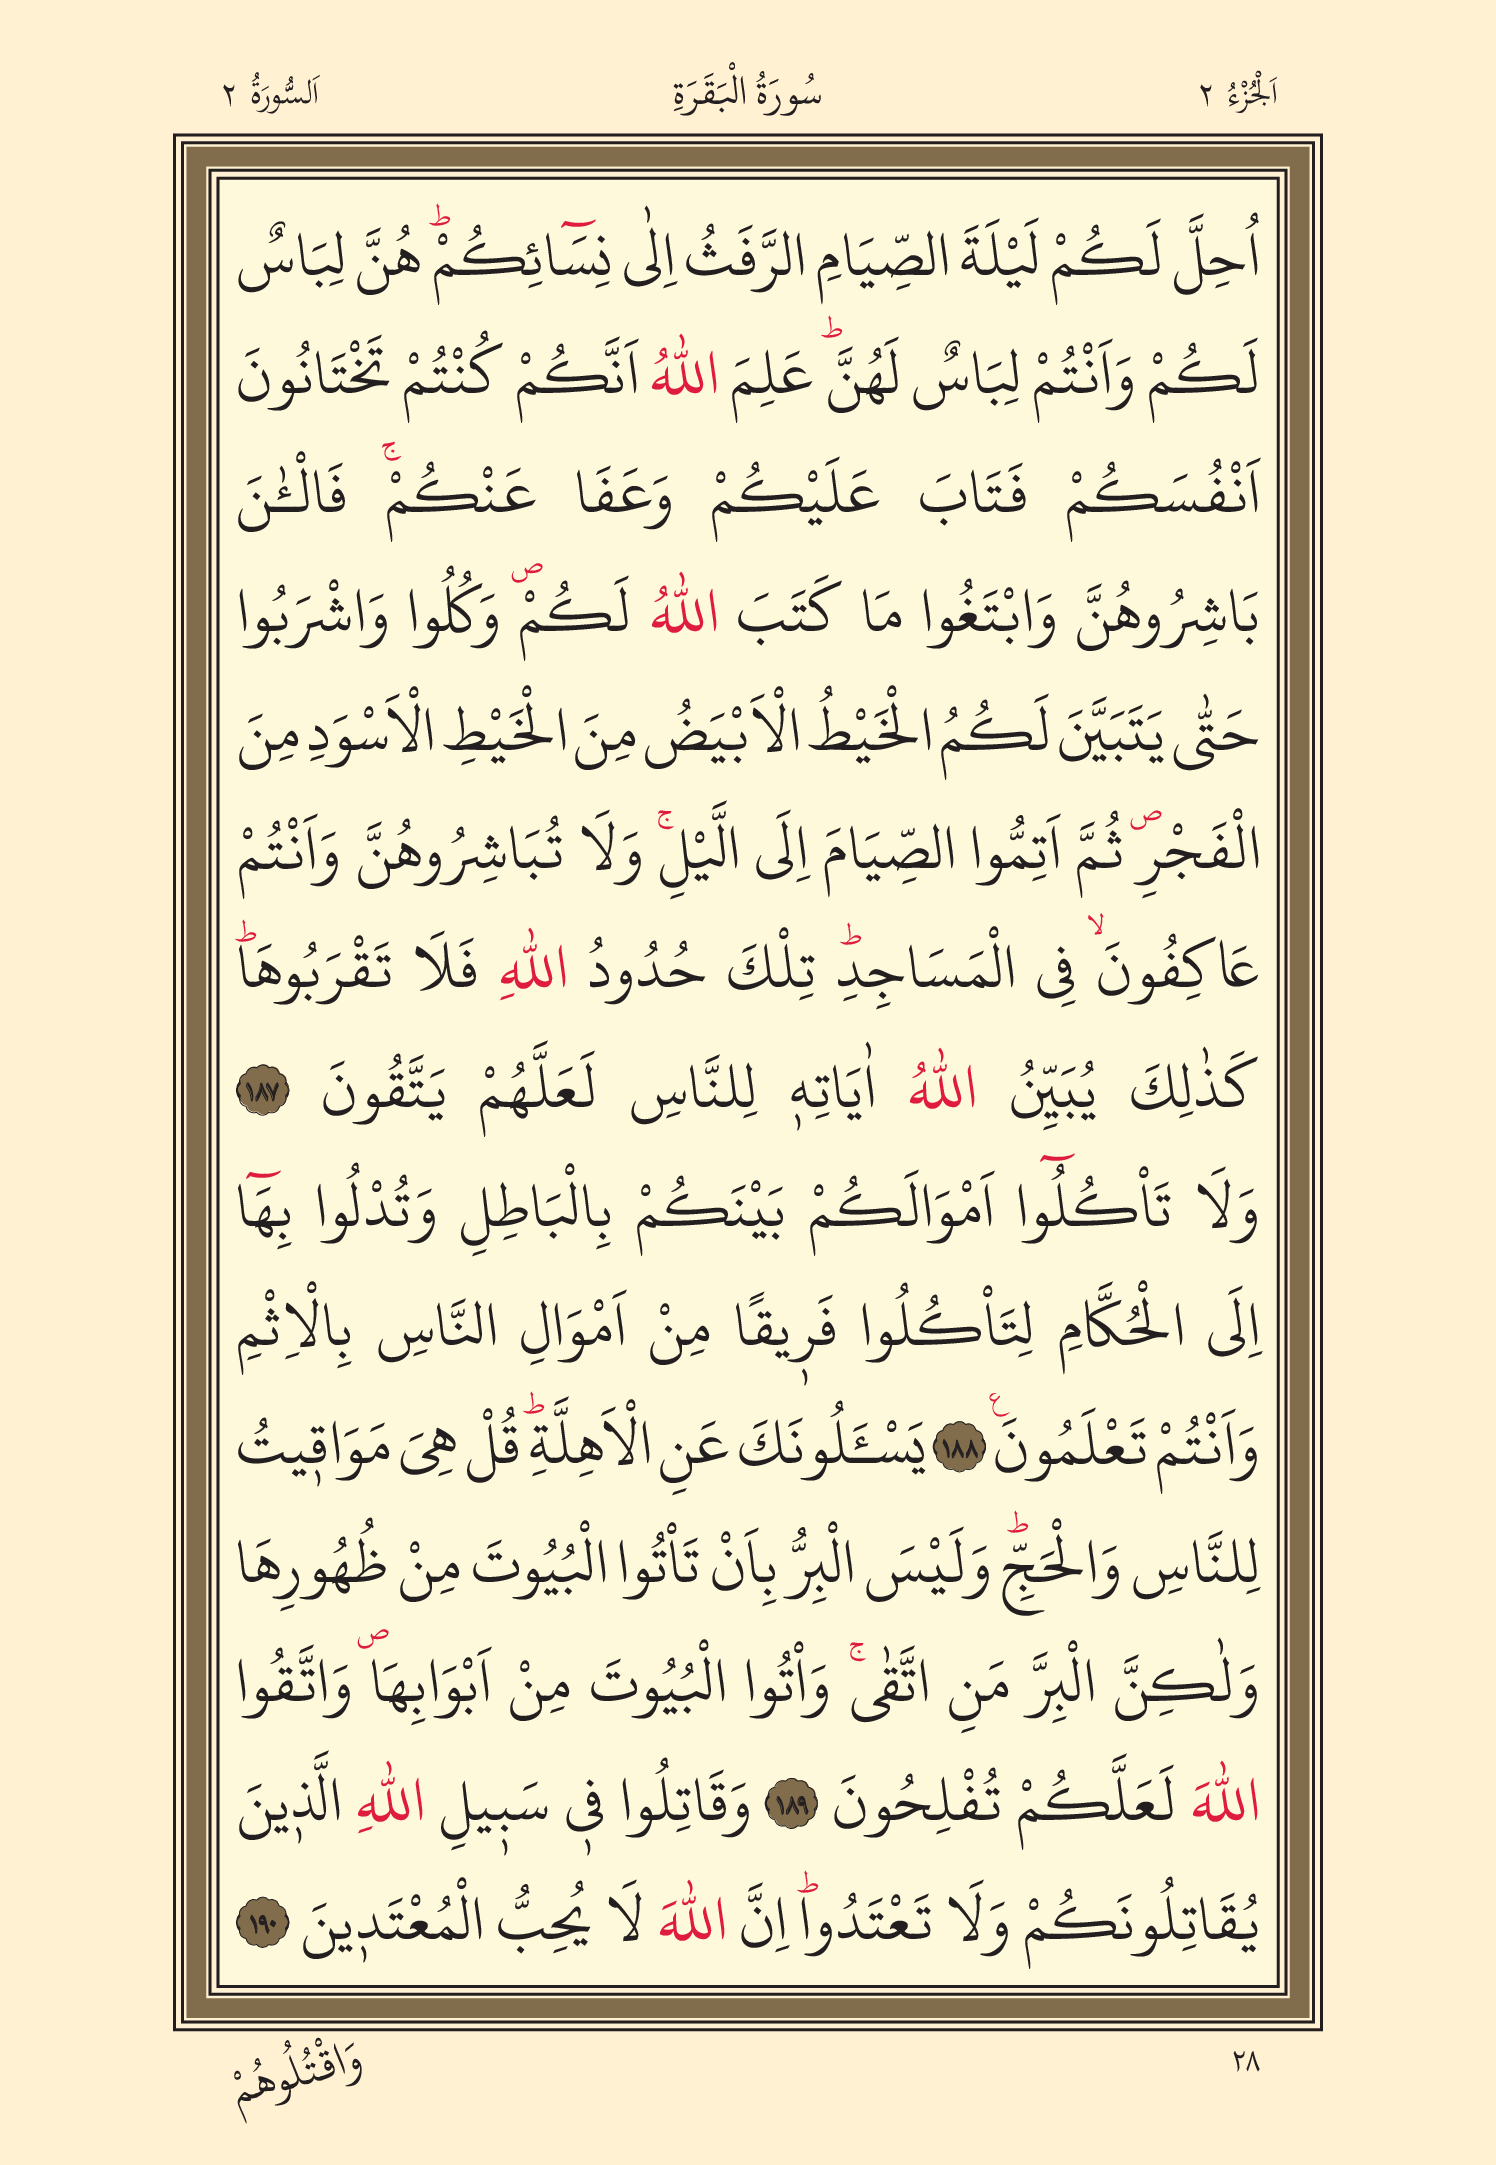 اَلْجُزْءُ ٢
سُورَةُ الْبَقَرَةِ
اَلسُّورَةُ ٢
اُحِلَّ لَكُمْ لَيْلَةَ الصِّيَامِ الرَّفَثُ اِلٰى نِسَٓائِكُمْۜ هُنَّ لِبَاسٌ
لَكُمْ وَاَنْتُمْ لِبَاسٌ لَهُنَّۜ عَلِمَ اللّٰهُ اَنَّكُمْ كُنْتُمْ تَخْتَانُونَ
اَنْفُسَكُمْ فَتَابَ عَلَيْكُمْ وَعَفَا عَنْكُمْۚ فَالْـٰٔنَ
بَاشِرُوهُنَّ وَابْتَغُوا مَا كَتَبَ اللّٰهُ لَكُمْۖ وَكُلُوا وَاشْرَبُوا
حَتّٰى يَتَبَيَّنَ لَكُمُ الْخَيْطُ الْاَبْيَضُ مِنَ الْخَيْطِ الْاَسْوَدِ مِنَ
الْفَجْرِۖ ثُمَّ اَتِمُّوا الصِّيَامَ اِلَى الَّيْلِۚ وَلَا تُبَاشِرُوهُنَّ وَاَنْتُمْ
عَاكِفُونَۙ فِى الْمَسَاجِدِۜ تِلْكَ حُدُودُ اللّٰهِ فَلَا تَقْرَبُوهَاۜ
كَذٰلِكَ يُبَيِّنُ اللّٰهُ اٰيَاتِه۪ لِلنَّاسِ لَعَلَّهُمْ يَتَّقُونَ ١٨٧
وَلَا تَاْكُلُٓوا اَمْوَالَكُمْ بَيْنَكُمْ بِالْبَاطِلِ وَتُدْلُوا بِهَٓا
اِلَى الْحُكَّامِ لِتَاْكُلُوا فَر۪يقًا مِنْ اَمْوَالِ النَّاسِ بِالْاِثْمِ
وَاَنْتُمْ تَعْلَمُونَ۟ ١٨٨ يَسْـَٔلُونَكَ عَنِ الْاَهِلَّةِۜ قُلْ هِىَ مَوَاق۪يتُ
لِلنَّاسِ وَالْحَجِّۜ وَلَيْسَ الْبِرُّ بِاَنْ تَاْتُوا الْبُيُوتَ مِنْ ظُهُورِهَا
وَلٰكِنَّ الْبِرَّ مَنِ اتَّقٰىۚ وَاْتُوا الْبُيُوتَ مِنْ اَبْوَابِهَاۖ وَاتَّقُوا
اللّٰهَ لَعَلَّكُمْ تُفْلِحُونَ ١٨٩ وَقَاتِلُوا ف۪ى سَب۪يلِ اللّٰهِ الَّذ۪ينَ
يُقَاتِلُونَكُمْ وَلَا تَعْتَدُواۜ اِنَّ اللّٰهَ لَا يُحِبُّ الْمُعْتَد۪ينَ ١٩٠
٢٨
وَاقْتُلُوهُمْ